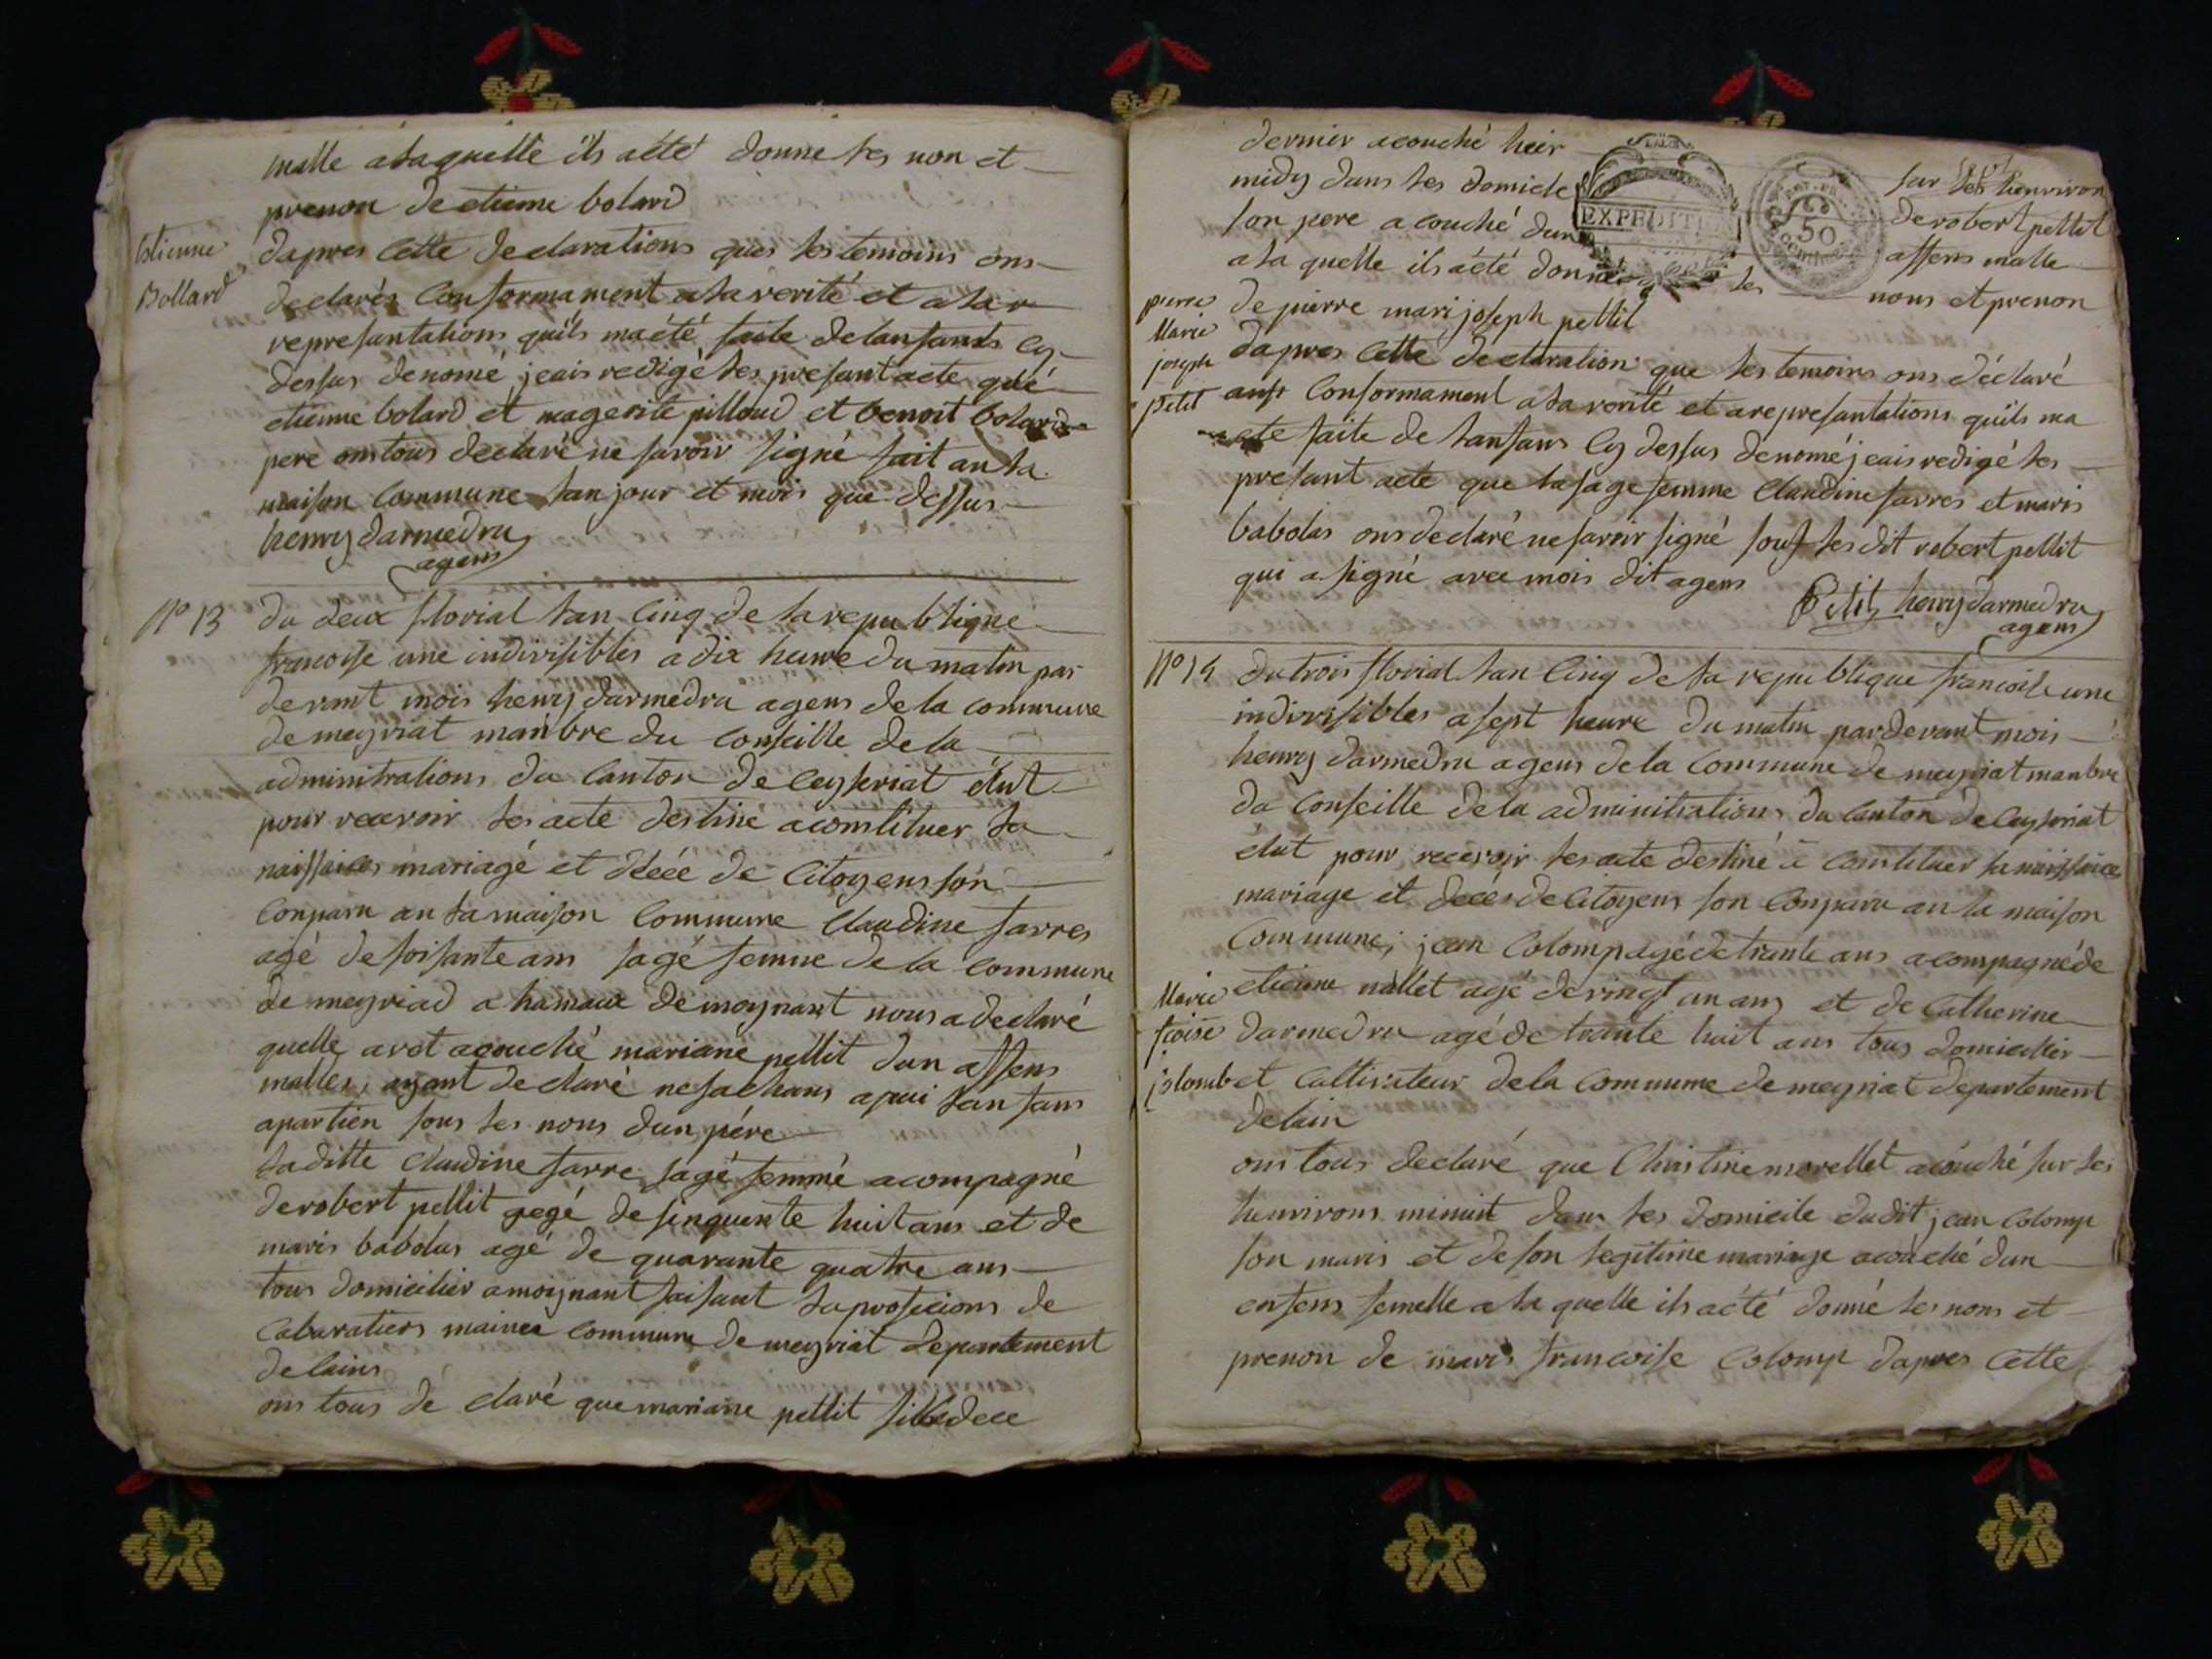 malle a la quelle ils aété donne les non et
prenon de etienne bolard
Estienne
Bollard
dapres cette declarations ques les temoins ons
declarés Conformament a la verité et a la r
represantations quils maété faite de lanfants cy
dessus denomé jeais redigé les presant acte qué
etienne bolard et magerite pilloud et benoit bolard
pere ons tous declaré ne savoir signé fait an la
maison Commune lan jour et mois que dessus
henry darmedru
agens
N° 13 du deux florial lan Cinq de la republique
francoise une indivisibles a dix heure du matin par
devant mois henry darmedru agens de la commune
de meyriat manbre du Conseille de la
adminitrations du Canton de Ceyseriat élut
pour recevoir les acte destiné a constituer la
naissaices mariagé et décée de Citoyens son
Conparu an la maison Commune Claudine farres
agé de soisante ans sagé femme de la commune
de meyriad a hamaux de moynant nous a declaré
quelle avot acouché mariane pellit dun affens
malles, ayant declaré ne sachans a qui lanfans
apartien sous les nons dun pére
laditte Claudine farre sagé femmé acompagné
de robert pellit gegé de sinquente huit ans et de
maris babolas agé de quarante quatre ans
tous domicilier a moignant faisant la proficions de
Cabaratiers mainea commune de meyriat departement
de lains
ons tous dé claré que mariane pellit fille dece
dernier acouché heir sur les henviron
midy dans les domicle de robert pellit
son pere a couché dun affens malle
a la quelle ils aété donné les nons et prenon
EXPEDITI
50
de pierre mari joseph pellit
pierre
Marie
joseph
petit
dapres cette déclaration que les temoins ons déclaré
ans Conformament a la verité et a represantations quils ma
ete faite de lanfans Cy dessus denomé jeais redigé les
presant acte que la sage femme Claudine farres et maris
babolas ons declaré ne savoir signé souf les dit robert pellit
qui a signé avec mois dit agens
Petit henry darmedru
agens
N° 14 du trois florial lan Cinq de la republique francoise une
indivisibles a sept heure du matin pardevant mois
henry darmedru agens de la Commune de meyriat manbre
du Conseille de la adminitrations du Canton de Ceyseriat
élut pour recevoir les acte destiné à Constituer la naissaice
mariage et decés de Citoyens son Conparu an la maison
Commune; jean Colomp agé de trante ans acompagné de
etienne nallet agé de vingt un ans et de Catherine
Marie
fcoise
jolomb
darmedru agé de trante huit ans tous domicilier
et Cultivateur de la commune de meyriat departement
delain
ons tous declaré que Christine morellet acouché sur les
henvirons minuit dans les domicile dudit jean Colomp
son maris et de son legitime mariage acouché dun
enfens femelle a la quelle ils aété donné les nons et
prenon de maris francoise Colomp dapres Cette